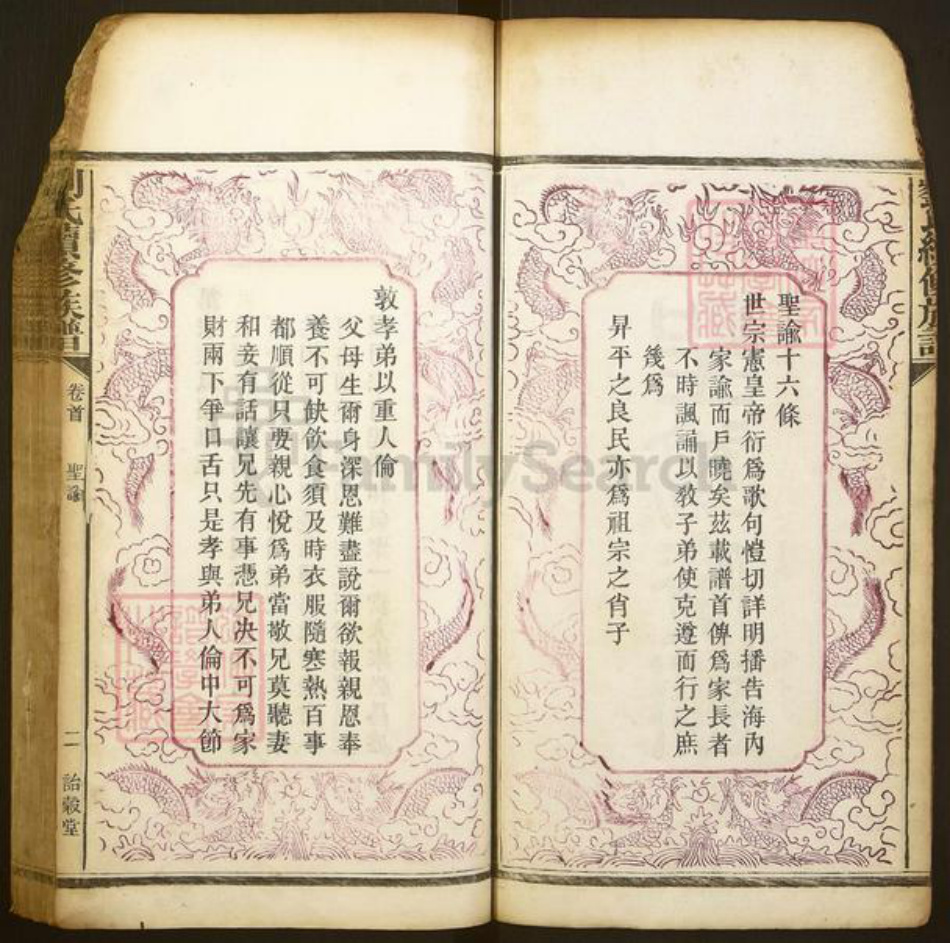 聖諭十六條
世宗憲皇帝衍為歌句愷切詳明播告海內
家諭而戶曉矣茲載譜首俾為家長者
不時諷誦以教子弟使克遵而行之庶
幾為
昇平之良民亦為祖宗之肖子
敦孝弟以重人倫
父母生爾身深恩難盡說爾欲報親恩奉
養不可缺飲食須及時衣服隨寒熱百事
都順從只要親心悅為弟當敬兄莫聽妻
和妾有話讓兄先有事憑兄决不可為家
財兩下爭口舌只是孝與弟人倫中大節
氏續修族譜
卷首
聖諭
二
詒穀堂
FamilySearch